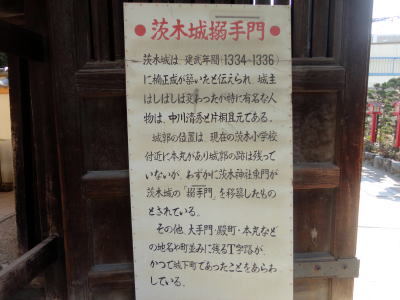 茨木城搦手門
茨木城は 建武年間(1334-1336)
に楠正成が築いたと伝えられ 城主
はしばしば変わったが特に有名な人
物は、中川清秀と片桐且元である。
城郭の位置は、現在の茨木小学校
付近に本丸があり城郭の跡は残って
いないが、わずかに茨木神社東門が
茨木城の「搦手門」を移築したもの
とされている。
その他、大手門・殿町・本丸など
の地名や町並みに残るT字路が、
かつて城下町であったことをあらわ
している。